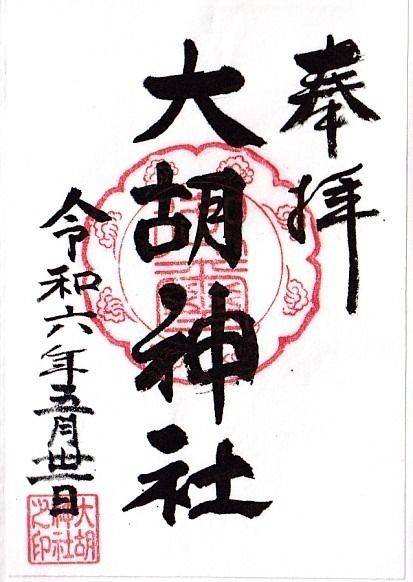 奉拝
大胡神社
令和六年五月丗一日
大胡
神社
之印